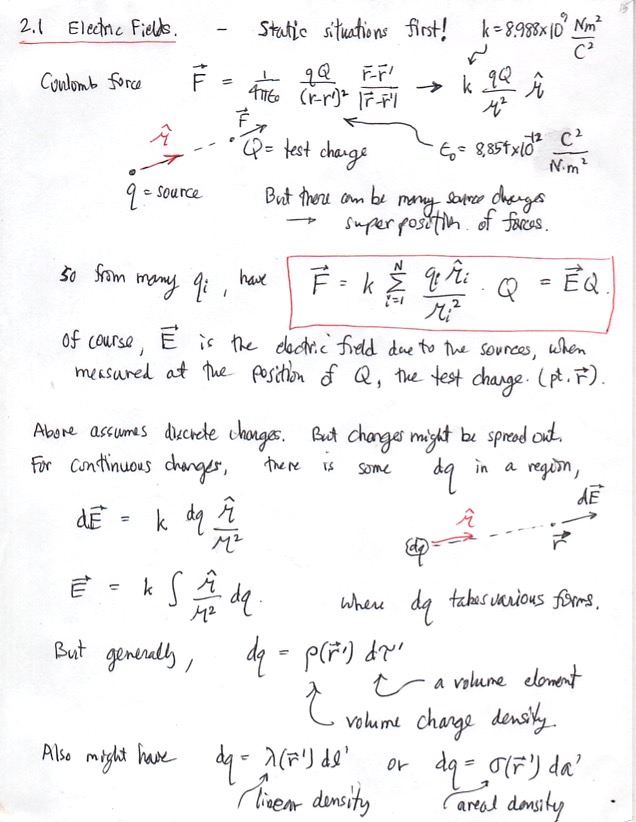 15
2.1 Electric Fields. - Static situations first! k = 8.988×10⁹ Nm²/C²
Coulomb force F⃗ = 1/4πε₀ qQ/(r-r')² (r⃗-r⃗')/|r⃗-r⃗'| → k qQ/𝓇² 𝓇̂
𝓇̂ F⃗
Q = test charge ε₀ = 8.854×10⁻¹² C²/N·m²
q = source But there can be many source charges
→ superposition of forces.
So from many qᵢ, have F⃗ = k Σᵢ₌₁ᴺ qᵢ𝓇̂ᵢ/𝓇ᵢ² · Q = E⃗Q.
Of course, E⃗ is the electric field due to the sources, when
measured at the position of Q, the test charge. (pt. r⃗).
Above assumes discrete charges. But charges might be spread out.
For continuous charges, there is some dq in a region,
dE⃗ = k dq 𝓇̂/𝓇² dq 𝓇̂ r⃗ dE⃗
E⃗ = k ∫ 𝓇̂/𝓇² dq. where dq takes various forms.
But generally, dq = ρ(r⃗') dτ'
a volume element
volume charge density.
Also might have dq = λ(r⃗') dl' or dq = σ(r⃗') da'
linear density areal density